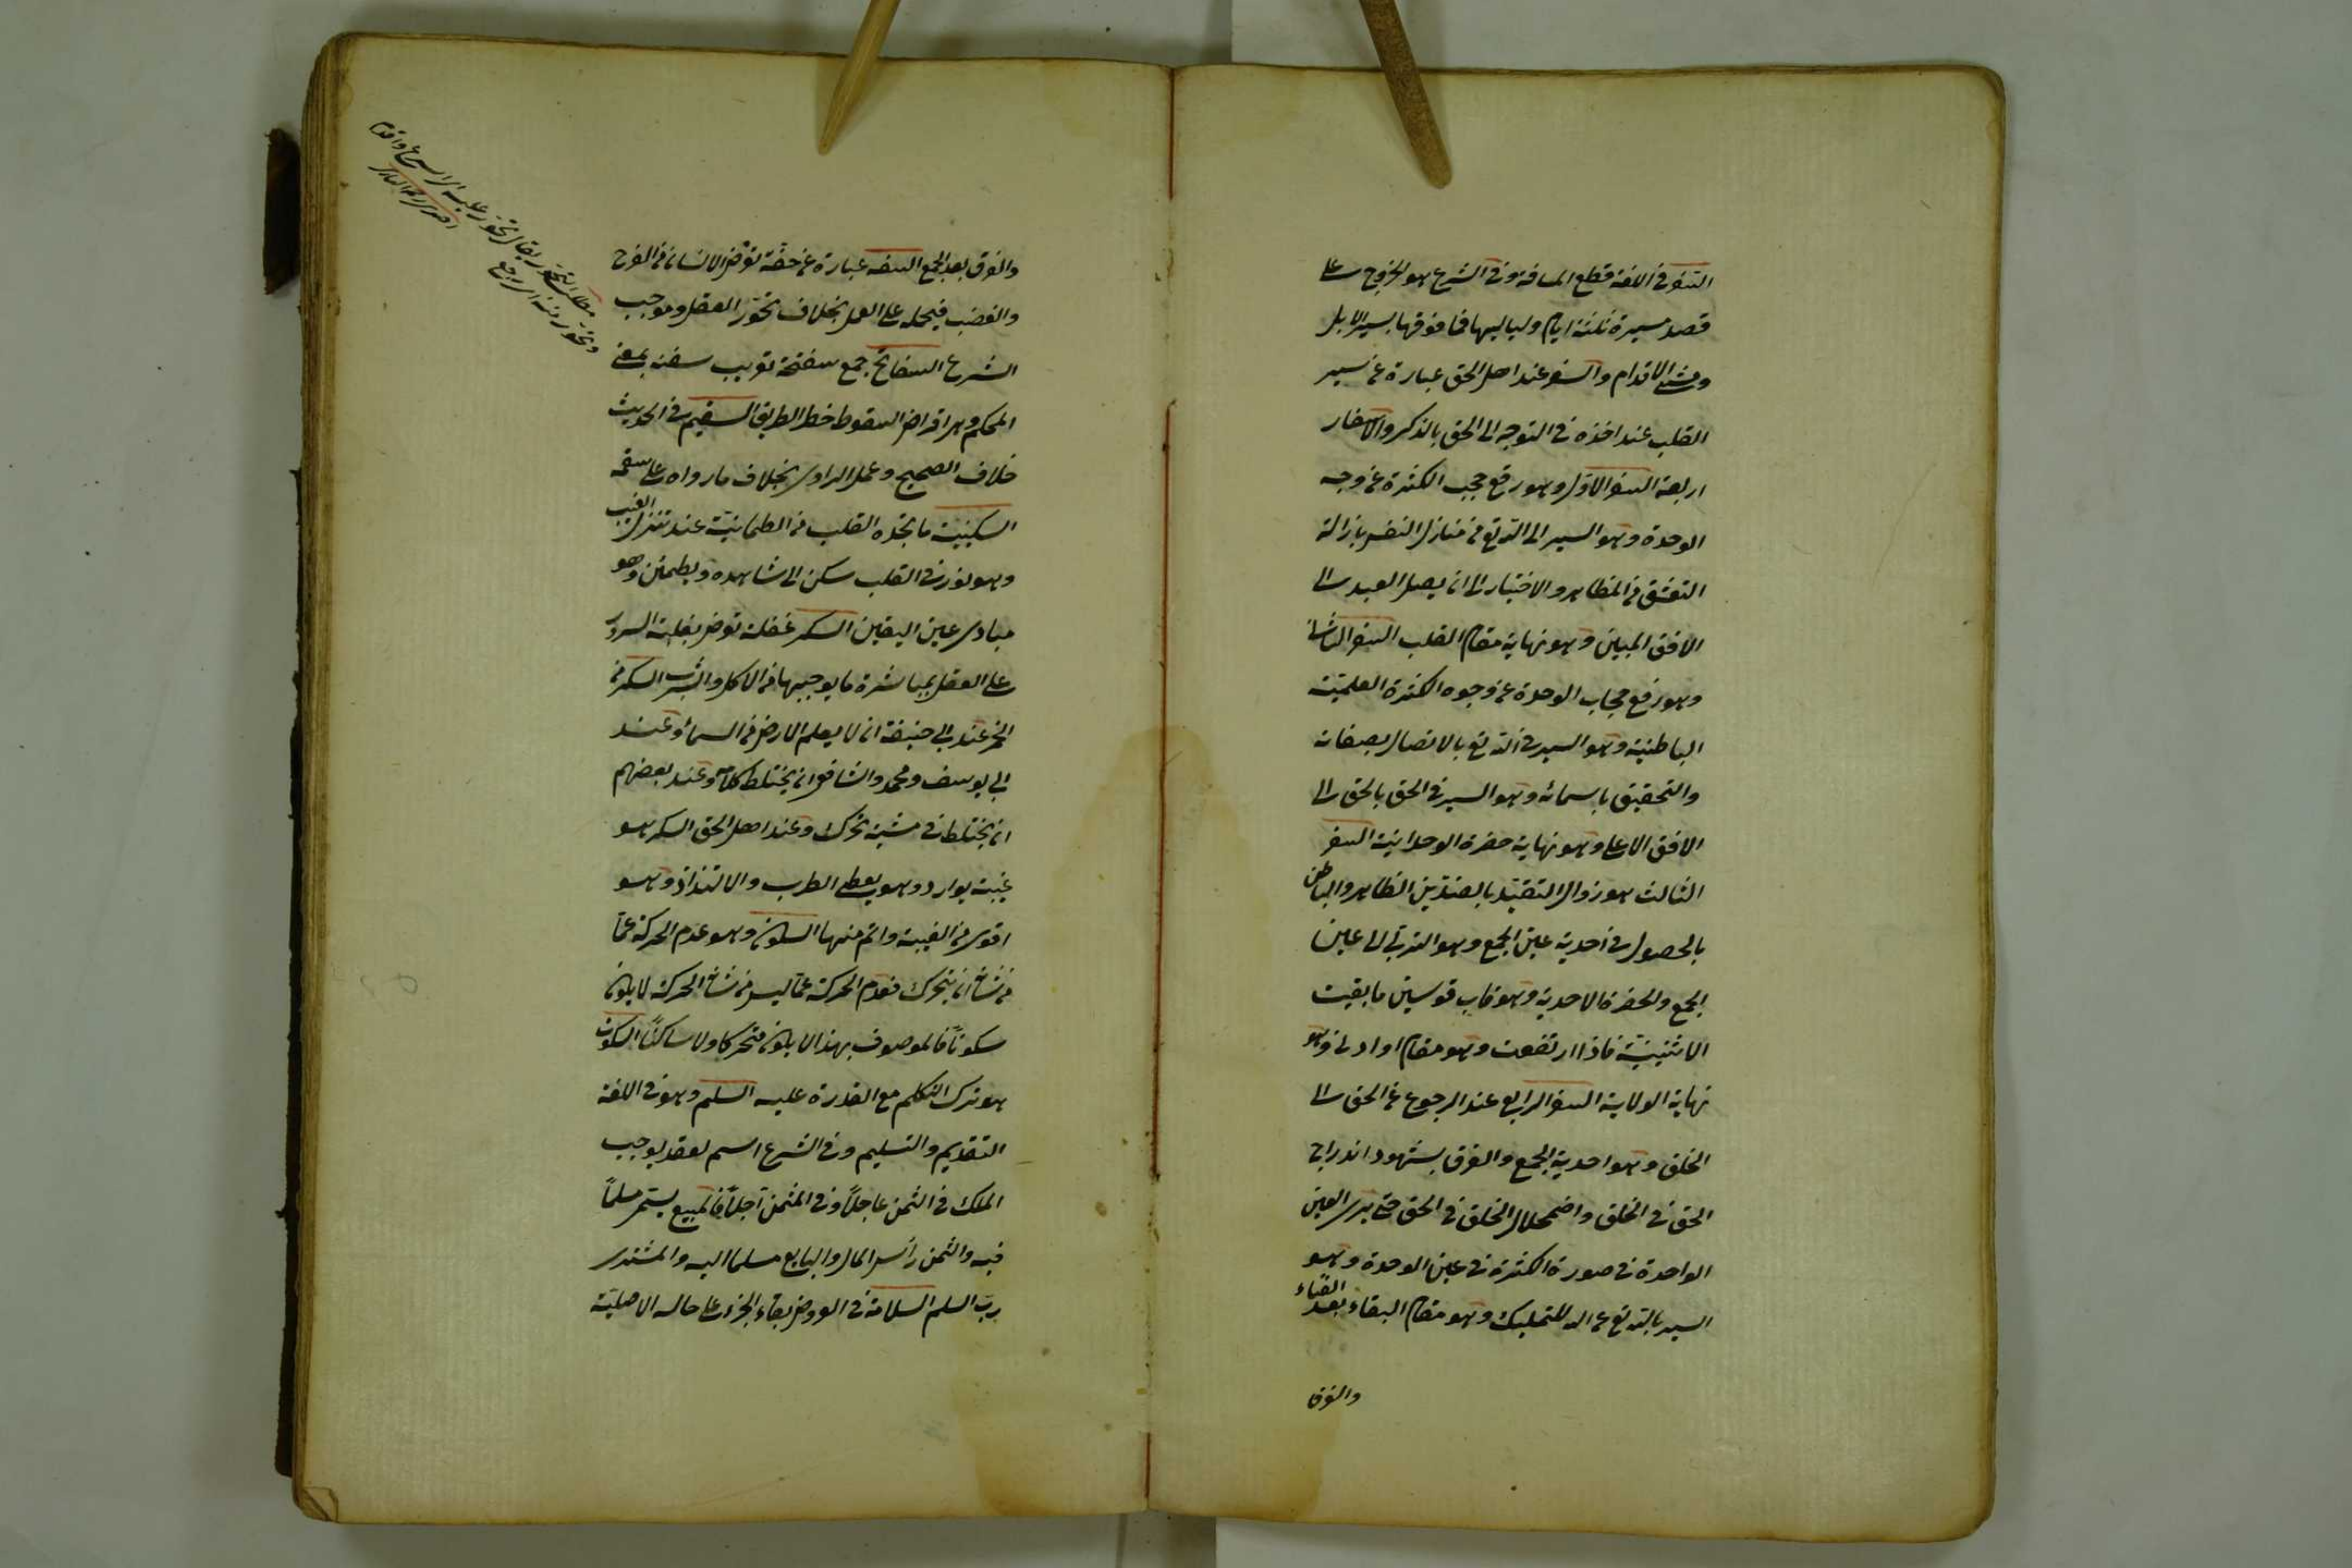 السفر فى اللغة قطع المسافة وفى الشرع هو الخروج على
قصد مسيرة ثلثة ايام ولياليها فما فوقها بسير الابل
ومشى الاقدام والسفر عند اهل الحق عبارة عن سير
القلب عند اخذه فى التوجه الى الحق بالذكر والاسفار
اربعة السفر الاول وهو رفع حجب الكثرة عن وجه
الوحدة وهو السير الى الله تع من منازل النفس بازالة
التعشق من المظاهر والاختيار الى ان يصل العبد الى
الافق المبين وهو نهاية مقام القلب السفر الثانى
وهو رفع حجاب الوحدة عن وجوه الكثرة العلمية
الباطنية وهو السير فى الله تع بالاتصال بصفاته
والتحقيق باسمائه وهو السير فى الحق بالحق الى
الافق الاعلى وهو نهاية حضرة الوحدانية السفر
الثالث هو زوال التقيد بالضدين الظاهر والباطن
بالحصول فى احدية عين الجمع وهو الترقى الى عين
الجمع والحضرة الاحدية وهو قاب قوسين ما بقيت
الاثنينية فاذا ارتفعت وهو مقام او ادنى وهو
نهاية الولاية السفر الرابع عند الرجوع عن الحق الى
الخلق وهو احدية الجمع والفرق بشهود اندراج
الحق فى الخلق واضمحلال الخلق فى الحق حتى يرى العين
الواحدة فى صورة الكثرة فى عين الوحدة وهو
السير بالله تع عن الله للتمليك وهو مقام البقاء بعد الفناء
والفرق
والفرق بعد الجمع السفه عبارة عن خفة تعرض الانسان من الفرح
والغضب فيحمله على العمل بخلاف تحوّر العقل وموجب
الشرع السفاتج جمع سفتجة تعريب سفته بمعنى
المحكم وهى اقراض لسقوط خطر الطريق السقيم فى الحديث
خلاف الصحيح وعمل الراوى بخلاف ما رواه على سقمه
السكينة ما تجده القلب من الطمانينة عند تنزل الغيب
وهو نور فى القلب سكن الى شاهده ويطمئن وهو
مبادى عين اليقين السكر غفلة تعرض بغلبة السرور
على العقل بمباشرة ما يوجبها من الاكل والشرب السكر من
الخمر عند ابى حنيفة ان لا يعلم الارض من السماء وعند
ابى يوسف ومحمد والشافعى ان يختلط كلامه وعند بعضهم
ان يختلط فى مشيته تحرك وعند اهل الحق السكر هو
غيبة بوارد وهو يعطى الطرب والالتذاذ وهو
اقوى من الغيبة واتم منها السكون وهو عدم الحركة عما
من شأنه ان يتحرك فعدم الحركة عما ليس من شأنه الحركة لا يكون
سكونًا فالموصوف بهذا لا يكون متحركا ولا ساكنًا السكوت
هو ترك التكلم مع القدرة عليه السلم وهو فى اللغة
التقديم والتسليم وفى الشرع اسم لعقد يوجب
الملك فى الثمن عاجلًا وفى المثمن آجلًا فالمبيع يسمى مسلمًا
فيه والثمن رأس المال والبايع مسلما اليه والمشترى
رب السلم السلامة فى العروض بقاء الجزء على حاله الاصلية